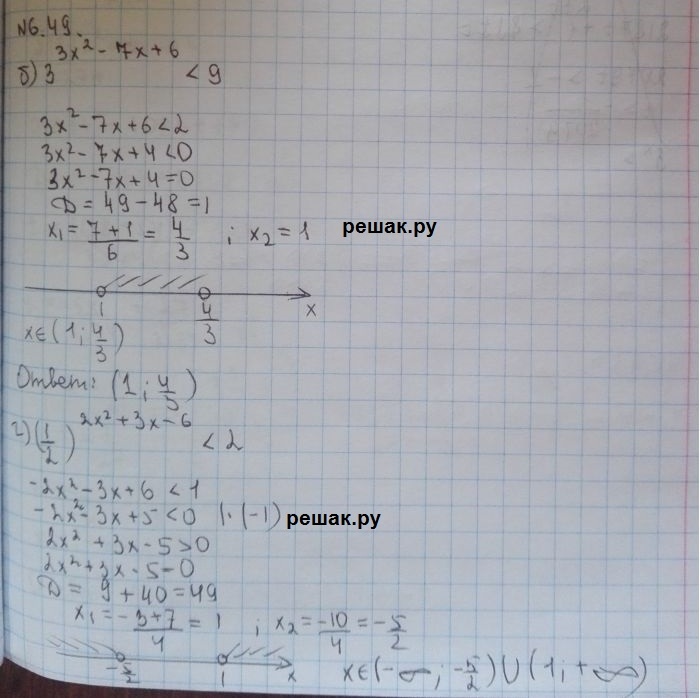 №6.49.
б) 3^(3x² - 7x + 6) < 9
3x² - 7x + 6 < 2
3x² - 7x + 4 < 0
3x² - 7x + 4 = 0
D = 49 - 48 = 1
x₁ = (7+1)/6 = 4/3 ; x₂ = 1
решак.ру
1 4/3 x
x∈(1; 4/3)
Ответ: (1; 4/3)
г) (1/2)^(2x² + 3x - 6) < 2
-2x² - 3x + 6 < 1
-2x² - 3x + 5 < 0 |·(-1) решак.ру
2x² + 3x - 5 > 0
2x² + 3x - 5 = 0
D = 9 + 40 = 49
x₁ = (-3+7)/4 = 1 ; x₂ = -10/4 = -5/2
-5/2 1 x x∈(-∞; -5/2)∪(1; +∞)